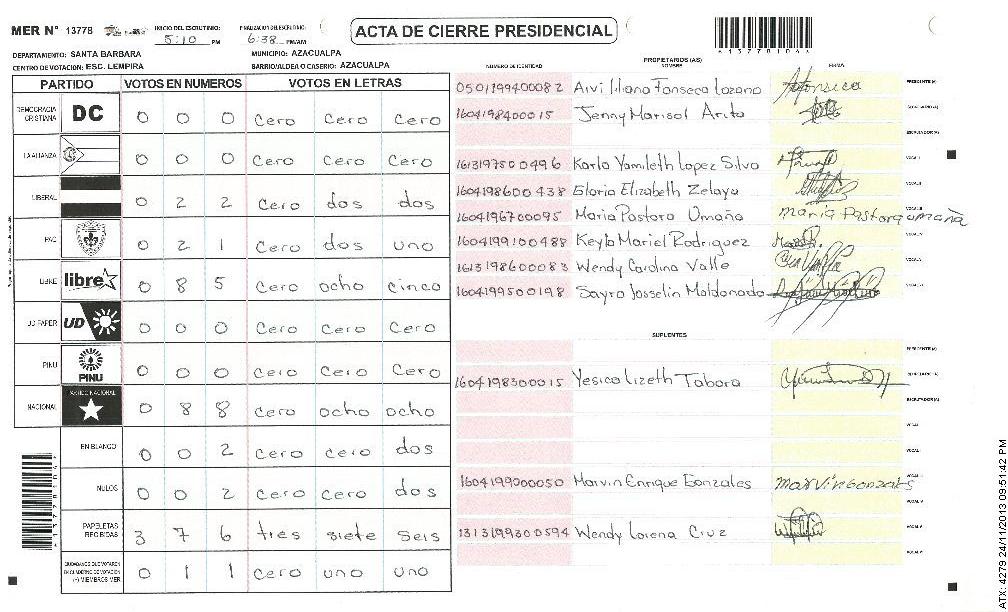 MER Nº 13778
INICIO DEL ESCRUTINIO: 5:10 PM
FINALIZACION DEL ESCRUTINIO: 6:38 PM/AM
ACTA DE CIERRE PRESIDENCIAL
DEPARTAMENTO: SANTA BARBARA
MUNICIPIO: AZACUALPA
CENTRO DE VOTACION: ESC. LEMPIRA
BARRIO/ALDEA O CASERIO: AZACUALPA
PARTIDO VOTOS EN NUMEROS VOTOS EN LETRAS
DEMOCRACIA CRISTIANA DC 0 0 0 Cero Cero Cero
LA ALIANZA 0 0 0 Cero Cero Cero
LIBERAL 0 2 2 Cero dos dos
PAC 0 2 1 Cero dos uno
LIBRE libre 0 8 5 Cero ocho cinco
UD-FAPER UD 0 0 0 Cero Cero Cero
PINU PINU 0 0 0 Cero Cero Cero
NACIONAL PARTIDO NACIONAL 0 8 8 Cero ocho ocho
EN BLANCO 0 0 2 Cero cero dos
NULOS 0 0 2 Cero cero dos
PAPELETAS RECIBIDAS 3 7 6 tres siete seis
CIUDADANOS QUE VOTARON EN CUADERNO DE VOTACION (+) MIEMBROS MER 0 1 1 Cero uno uno
1377804
PROPIETARIOS (AS)
NUMERO DE IDENTIDAD NOMBRE FIRMA
0501199400082 Arvi Iliana Fonseca Lozano Afonseca PRESIDENTE (A)
1604198400015 Jenny Marisol Arita SECRETARIO (A)
ESCRUTADOR (A)
1613197500496 Karla Yamileth Lopez Silva VOCAL I
1604198600438 Gloria Elizabeth Zelaya VOCAL II
1604196700095 Maria Pastora Umaña maria Pastora umaña VOCAL III
1604199100488 Keyla Mariel Rodriguez VOCAL IV
1613198600083 Wendy Carolina Valle VOCAL V
1604199500198 Sayra Josselin Maldonado
SUPLENTES
PRESIDENTE (A)
1604198300015 Yesica Lizeth Tabora SECRETARIO (A)
ESCRUTADOR (A)
VOCAL I
VOCAL II
1604199000050 Marvin Enrique Gonzales marvin Gonzales VOCAL III
VOCAL IV
1313199300594 Wendy Lorena Cruz VOCAL V
ATX: 4279 24/11/2013 09:51:42 PM